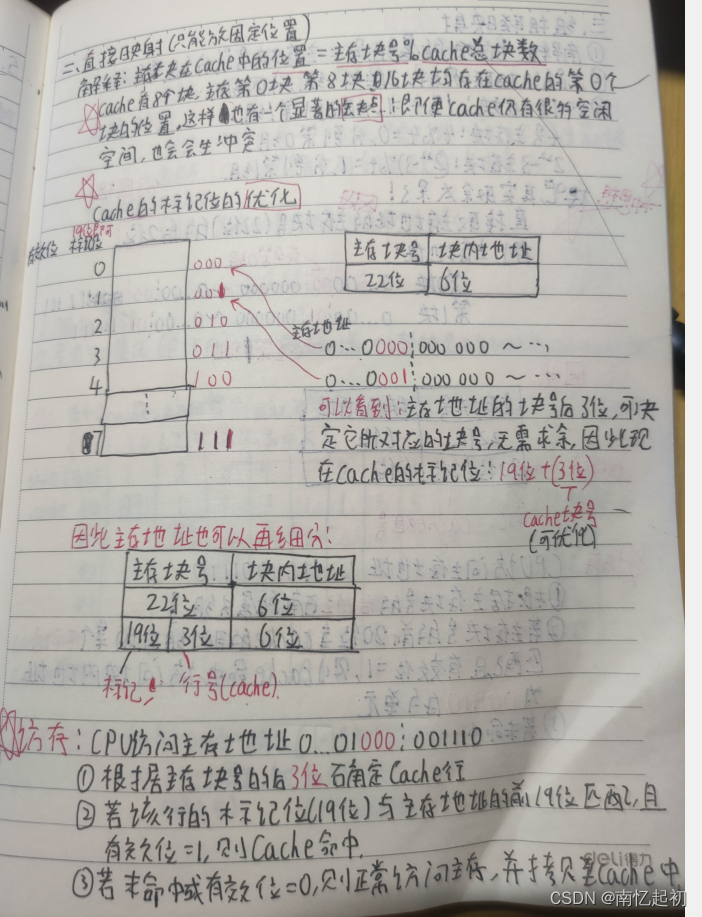 二、直接映射(只能放固定位置)
解释: 主存块在Cache中的位置=主存块号%cache总块数
cache有8个块,主存第0块 第8块 16块均存在cache的第0个
块的位置,这样也有一个显著的缺点:即便cache仍有很多空闲
空间,也会会生冲突
Cache的标记位的优化
有效位 标记位
主存块号 块内地址
22位 6位
0 000
1 001
2 010
3 011
4 100
⋮
7 111
主存地址
0...0000 000 000 ~ ...
0...0001 000 000 ~ ...
可以看到:主存地址的块号后3位,可决
定它所对应的块号,无需求余,因此现
在Cache的标记位:19位+(3位)
cache块号
(可优化)
因此主存地址也可以再细分:
主存块号 块内地址
22位 6位
19位 3位 6位
标记 行号(cache)
访存:CPU访问主存地址0...01000 001110
①根据主存块号的后3位确定Cache行
②若该行的标记位(19位)与主存地址的前19位匹配,且
有效位=1,则Cache命中.
③若未命中或有效位=0,则正常访问主存,并拷贝至Cache中
deli得力
CSDN @南忆起初